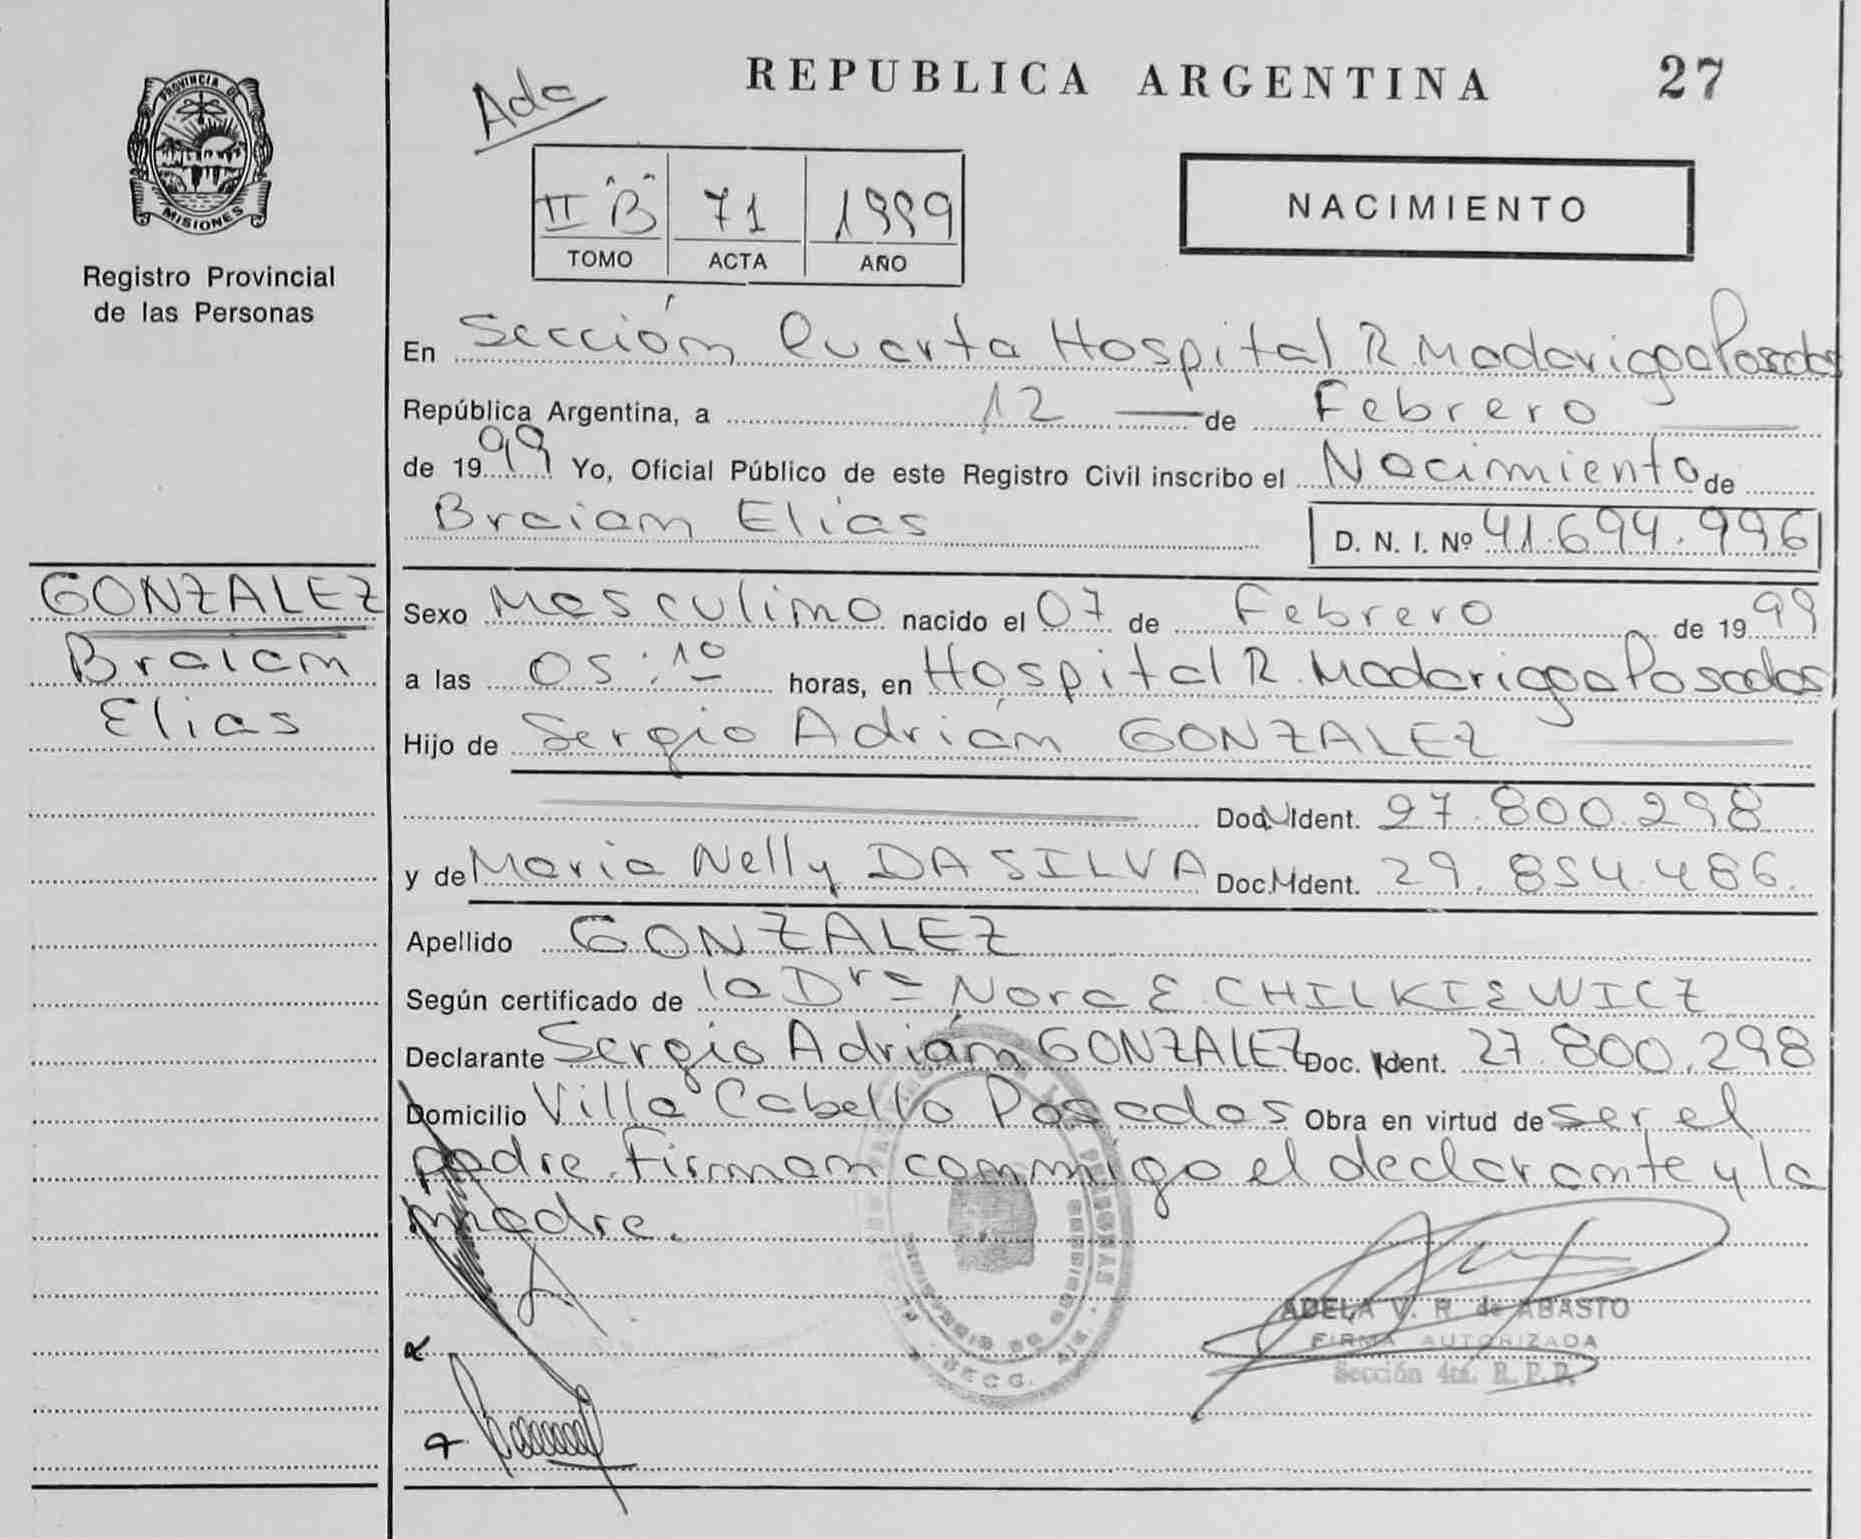 PROVINCIA DE
MISIONES
Registro Provincial
de las Personas
GONZALEZ
Braian
Elias
Ada
REPUBLICA ARGENTINA 27
II "B" 71 1999
TOMO ACTA AÑO
NACIMIENTO
En Sección Cuarta Hospital R. Madariaga Posadas
República Argentina, a 12 de Febrero
de 1999 Yo, Oficial Público de este Registro Civil inscribo el Nacimiento de
Braian Elias D. N. I. Nº 41.694.996
Sexo Masculino nacido el 07 de Febrero de 1999
a las 05:10 horas, en Hospital R. Madariaga Posadas
Hijo de Sergio Adrián GONZALEZ
Doc. Ident. 27.800.298
y de Maria Nelly DA SILVA Doc. Ident. 29.854.486.
Apellido GONZALEZ
Según certificado de la Dra Nora E. CHILKIEWICZ
Declarante Sergio Adrián GONZALEZ Doc. Ident. 27.800.298
Domicilio Villa Cabello Posadas Obra en virtud de ser el
padre. Firman conmigo el declarante y la
madre.
ADELA V. R. de ABASTO
FIRMA AUTORIZADA
Sección 4ta. R. P. P.